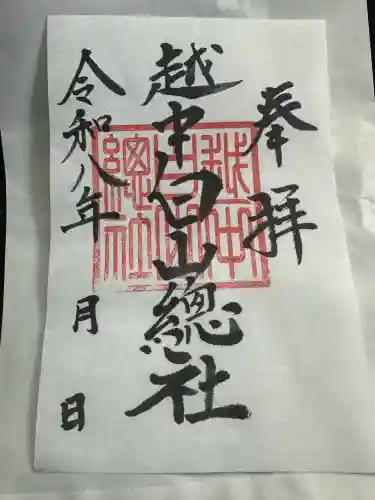 奉拝
越中白山總社
令和八年 月 日
越中
白山
總社